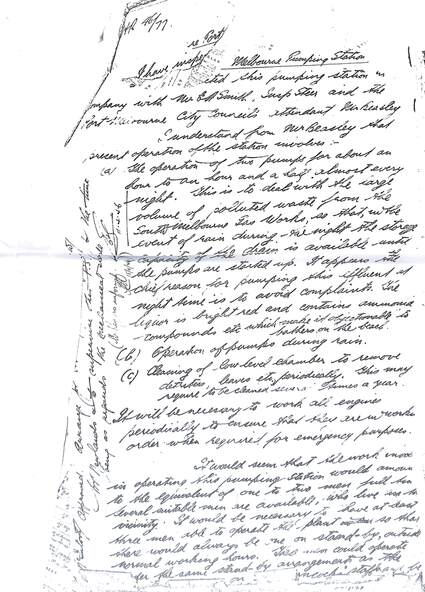 HR 46/77
re Port
Melbourne Pumping Station
I have inspected this pumping station in
company with Mr E.A. Smith, Insp Steer and the
Port Melbourne City Council's attendant Mr Beasley
I understand from Mr Beasley that
present operation of the station involves:-
(a) the operation of two pumps for about an
hour to an hour and a half almost every
night. This is to deal with the large
volume of polluted waste from the
South Melbourne Gas Works, so that, in the
event of rain during the night the storage
capacity of the drain is available until
the pumps are started up. It appears the
chief reason for pumping this effluent at
night time is to avoid complaints. The
liquor is bright red and contains ammonia
compounds etc which make it objectionable to
bathers on the beach.
(b) Operation of pumps during rain.
(c) Cleaning of low level chamber to remove
detritus, leaves etc, periodically. This may
require to be cleaned several times a year.
It will be necessary to work all engines
periodically to ensure that they are in working
order when required for emergency purposes.
It would seem that the work involved
in operating this pumping station would amount
to the equivalent of one to two men full time
Several suitable men are available, who live in the
vicinity. It would be necessary to have at least
three men able to operate the plant so that
there would always be one on stand-by, outside
normal working hours. These men could operate
on the same stand-by arrangement as the